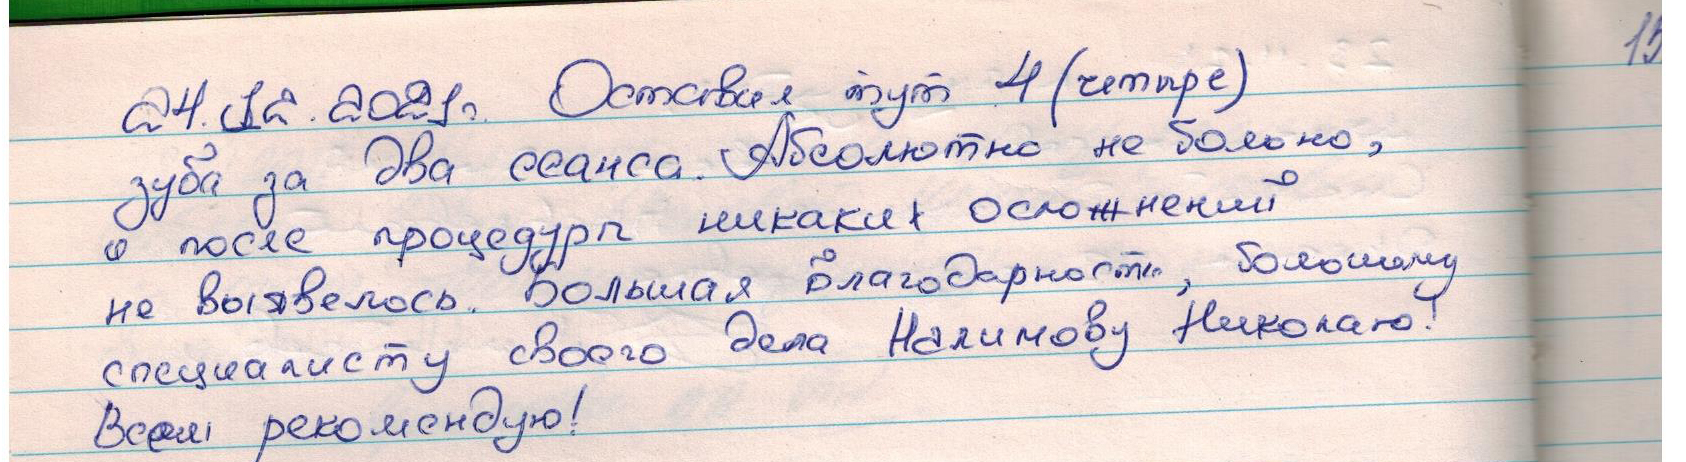 15
24.12.2021г. Оставил тут 4 (четыре)
зуба за два сеанса. Абсолютно не больно,
и после процедуры никаких осложнений
не выявелось. Большая благодарность, большому
специалисту своего дела Налимову Николаю!
Всем рекомендую!